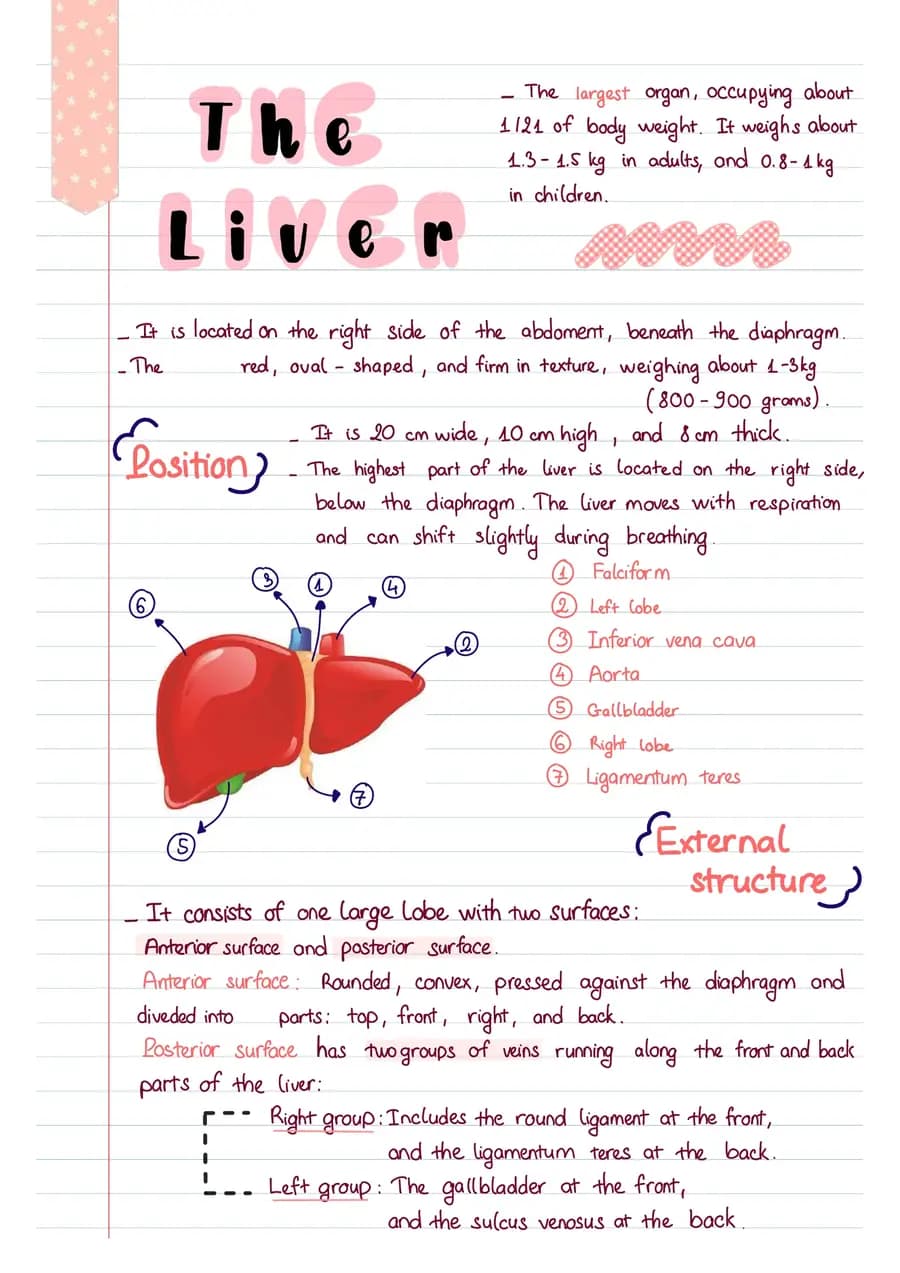 The
Liver
– The largest organ, occupying about
1/21 of body weight. It weighs about
1.3 – 1.5 kg in adults, and 0.8 – 1 kg
in children.
– It is located on the right side of the abdoment, beneath the diaphragm.
– The red, oval – shaped, and firm in texture, weighing about 1-3kg
(800 – 900 grams).
Position
– It is 20 cm wide, 10 cm high, and 8 cm thick.
– The highest part of the liver is located on the right side,
below the diaphragm. The liver moves with respiration
and can shift slightly during breathing.
3 1 4
6
2
7
5
1 Falciform
2 Left lobe
3 Inferior vena cava
4 Aorta
5 Gallbladder
6 Right lobe
7 Ligamentum teres
External
structure
– It consists of one large lobe with two surfaces:
Anterior surface and posterior surface.
Anterior surface: Rounded, convex, pressed against the diaphragm and
diveded into parts: top, front, right, and back.
Posterior surface has two groups of veins running along the front and back
parts of the liver:
Right group: Includes the round ligament at the front,
and the ligamentum teres at the back.
Left group: The gallbladder at the front,
and the sulcus venosus at the back.